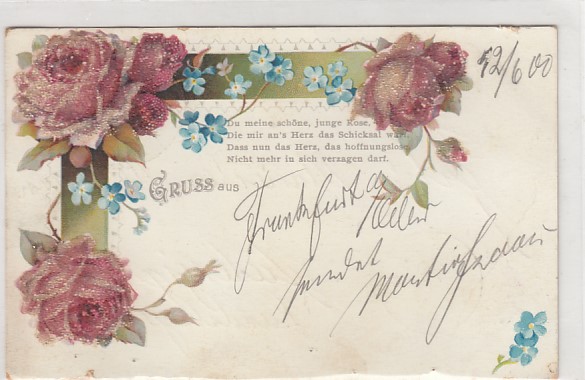 12/6 00
Du meine schöne, junge Rose,
Die mir an's Herz das Schicksal warf,
Dass nun das Herz, das hoffnungslose
Nicht mehr in sich verzagen darf.
GRUSS aus
Frankfurt a
Oder
sendet